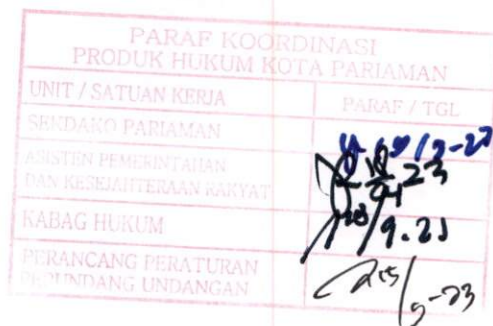 PARAF KOORDINASI
PRODUK HUKUM KOTA PARIAMAN
UNIT / SATUAN KERJA PARAF / TGL
SEKDAKO PARIAMAN
ASISTEN PEMERINTAHAN
DAN KESEJAHTERAAN RAKYAT
KABAG HUKUM
PERANCANG PERATURAN
PERUNDANG UNDANGAN